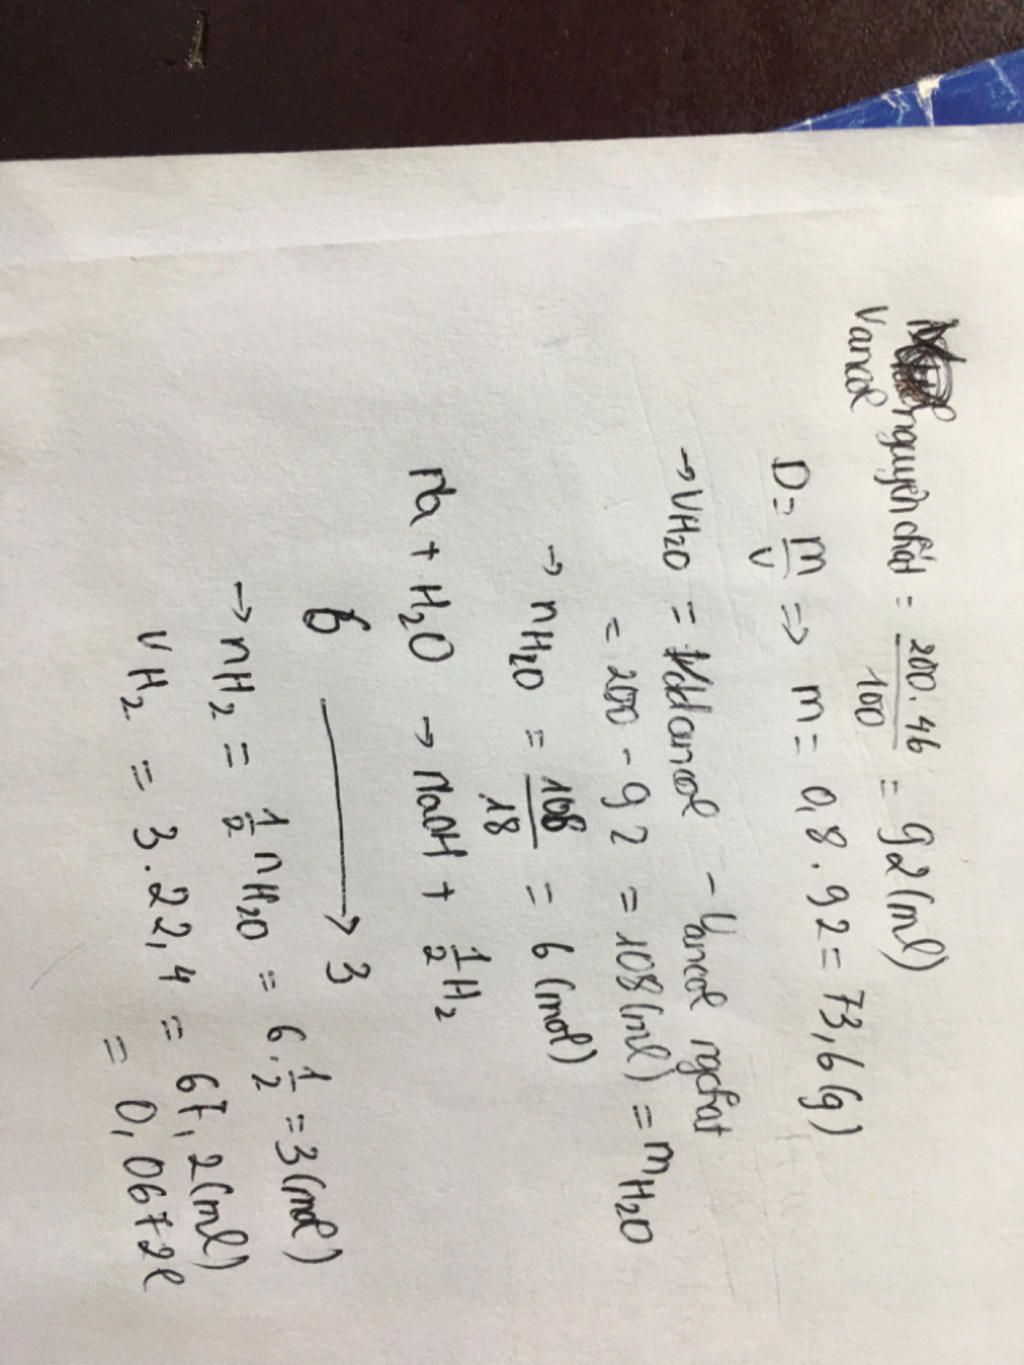 Vancol nguyên chất = 200.46/100 = 92(ml)
D = m/V => m = 0,8.92 = 73,6(g)
→ VH2O = Vddancol - Vancol ngchất
= 200 - 92 = 108(ml) = mH2O
→ nH2O = 108/18 = 6(mol)
Na + H2O → NaOH + 1/2 H2
6 → 3
→ nH2 = 1/2 nH2O = 6.1/2 = 3(mol)
VH2 = 3.22,4 = 67,2(ml)
= 0,0672l